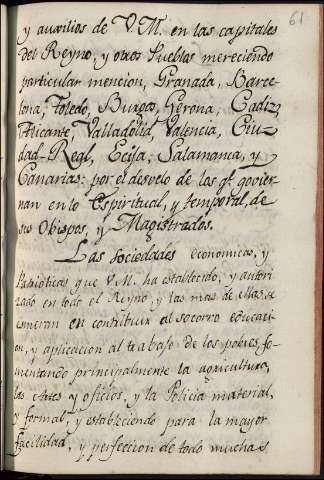 61
y auxilios de V. M. en las capitales
del Reyno, y otros Pueblos mereciendo
particular mencion, Granada, Barce-
lona, Toledo, Burgos, Gerona, Cadiz,
Alicante, Valladolid, Valencia, Ciu-
dad-Real, Ecija, Salamanca, y
Canarias: por el desvelo de los q.e govier-
nan en lo Espiritual, y temporal, de
sus Obispos, y Magistrados.
Las Sociedades economicas, y
Patrioticas que V. M. ha establecido, y autori
zado en todo el Reyno, y las mas de ellas, se
esmeran en constituir al socorro educaci
on, y aplicacion al trabajo de los pobres, fo-
mentando principalmente la agricultura,
las Artes y oficios, y la Policia material,
y formal, y estableciendo para la mayor
facilidad, y perfeccion de todo muchas